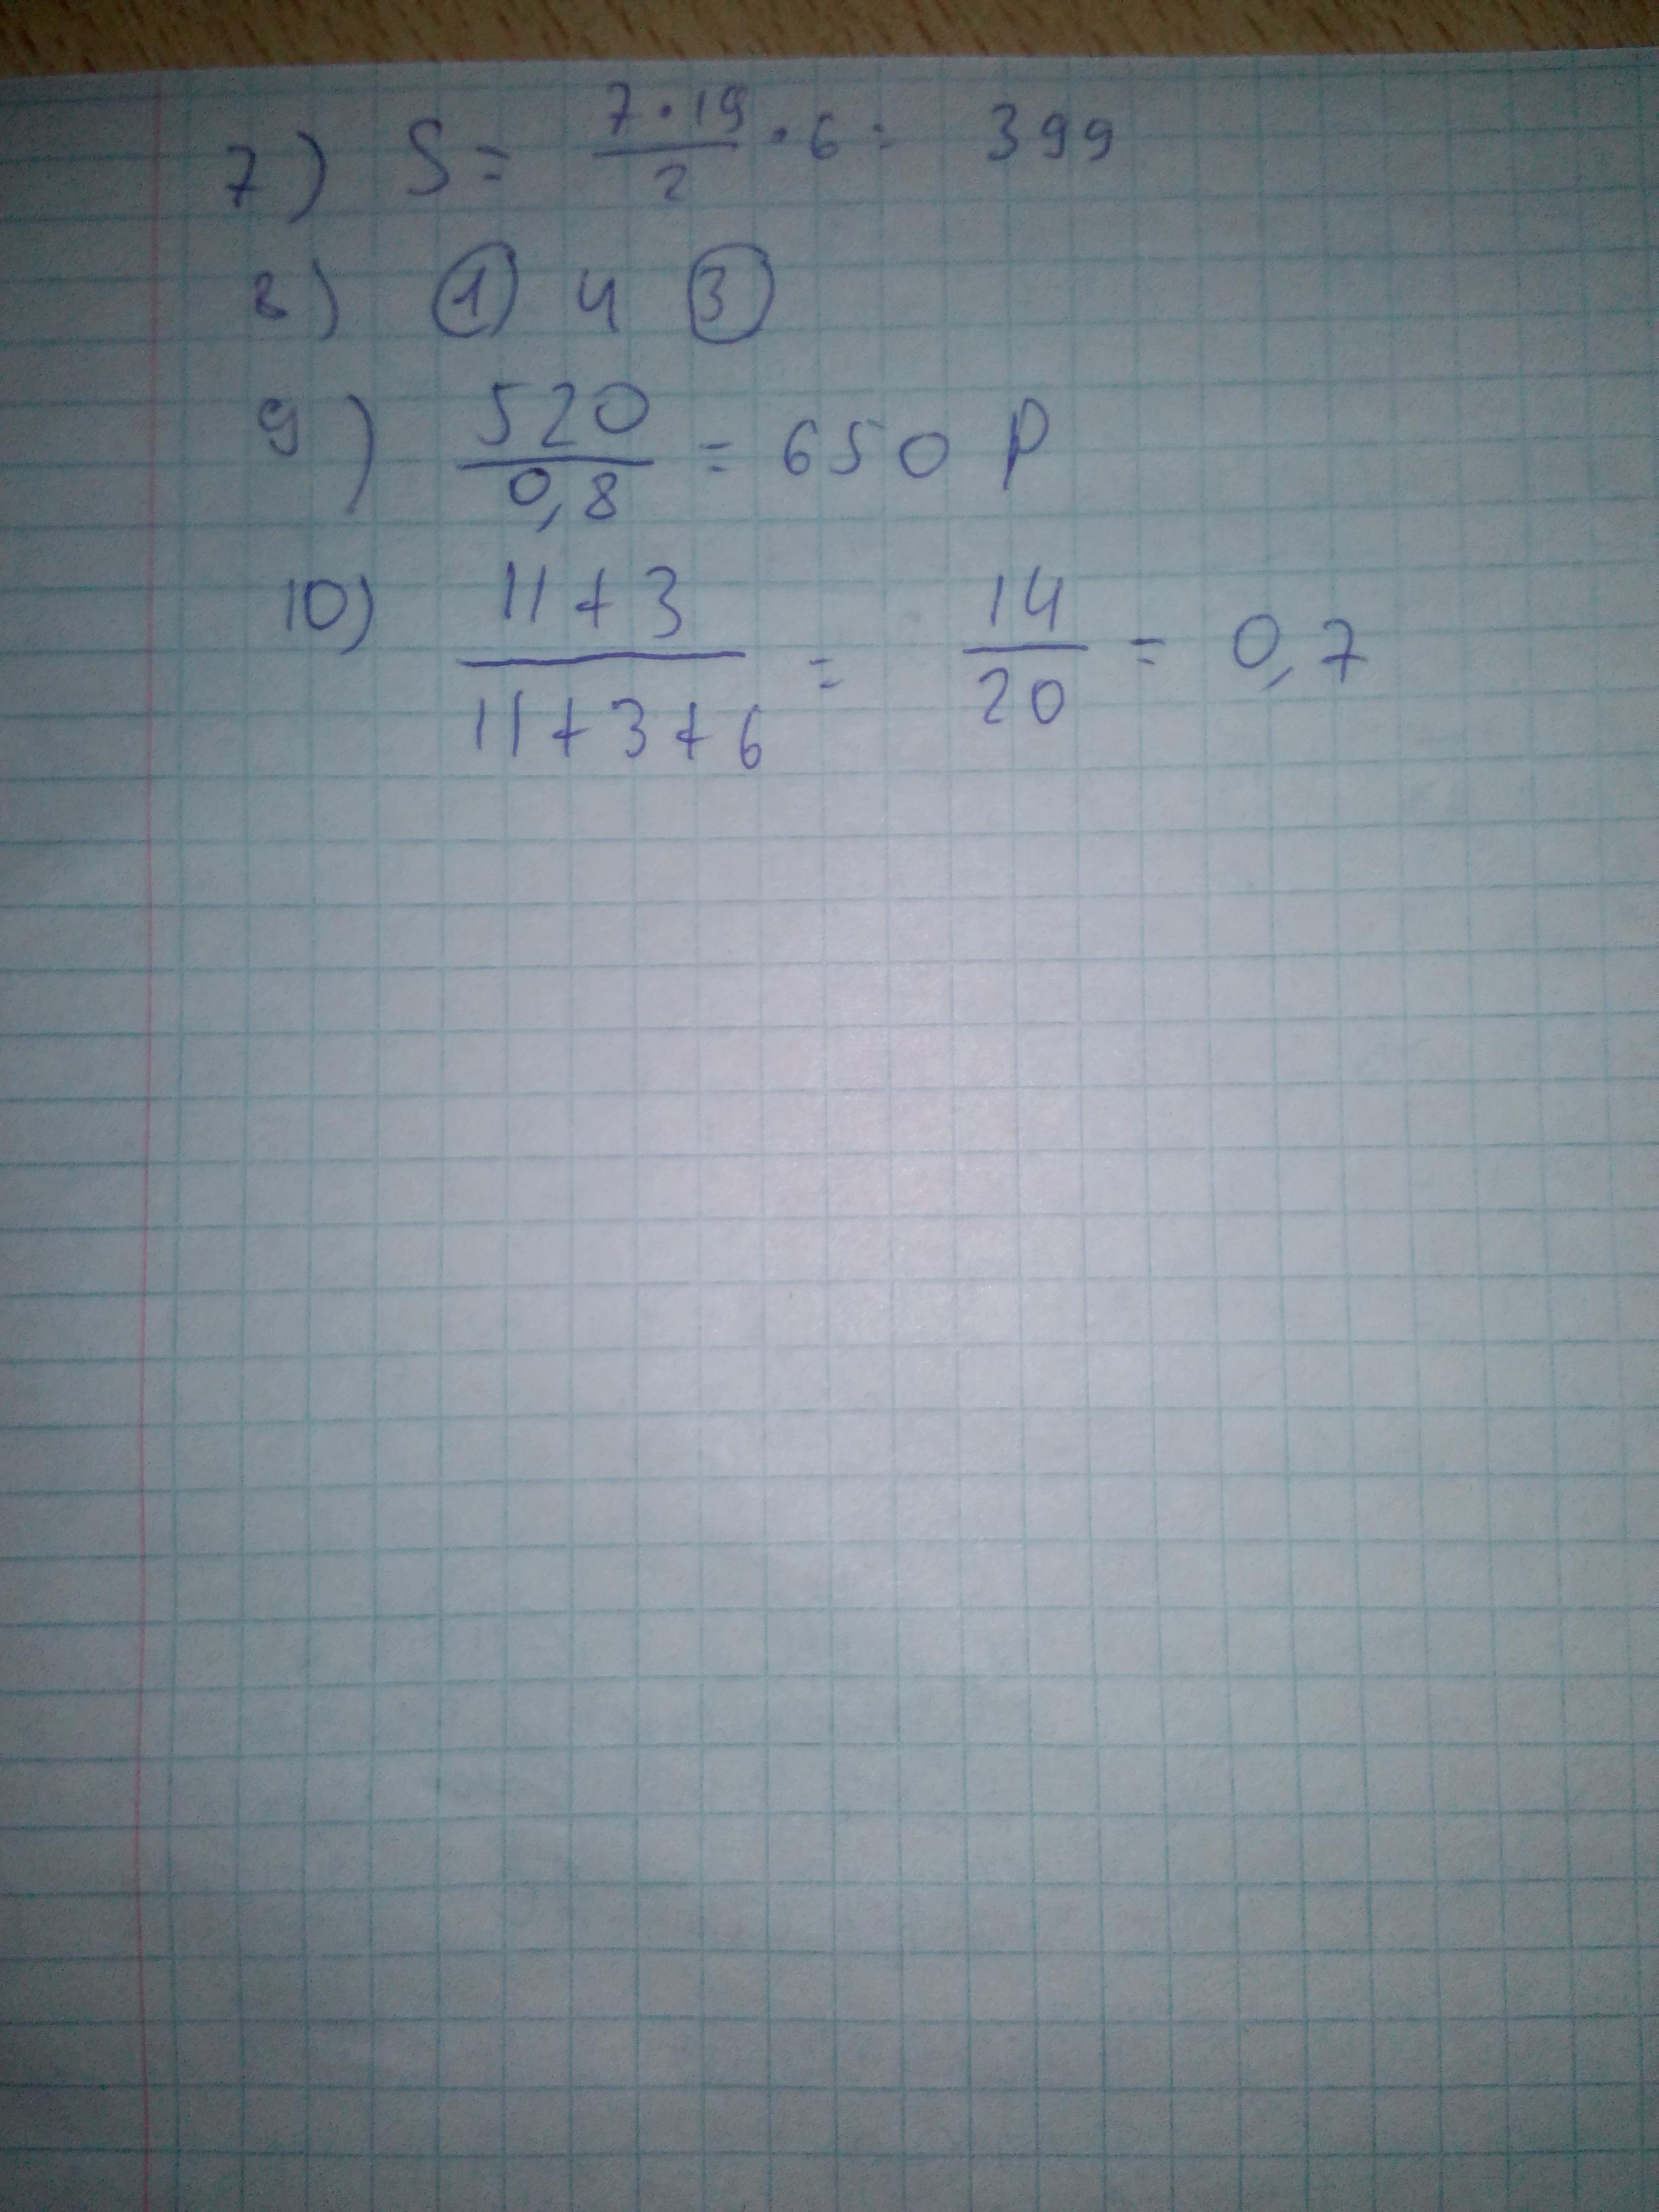 7) S = 7·19/2 · 6 = 399
8) ① и ③
9) 520/0,8 = 650 р
10) 11+3/11+3+6 = 14/20 = 0,7